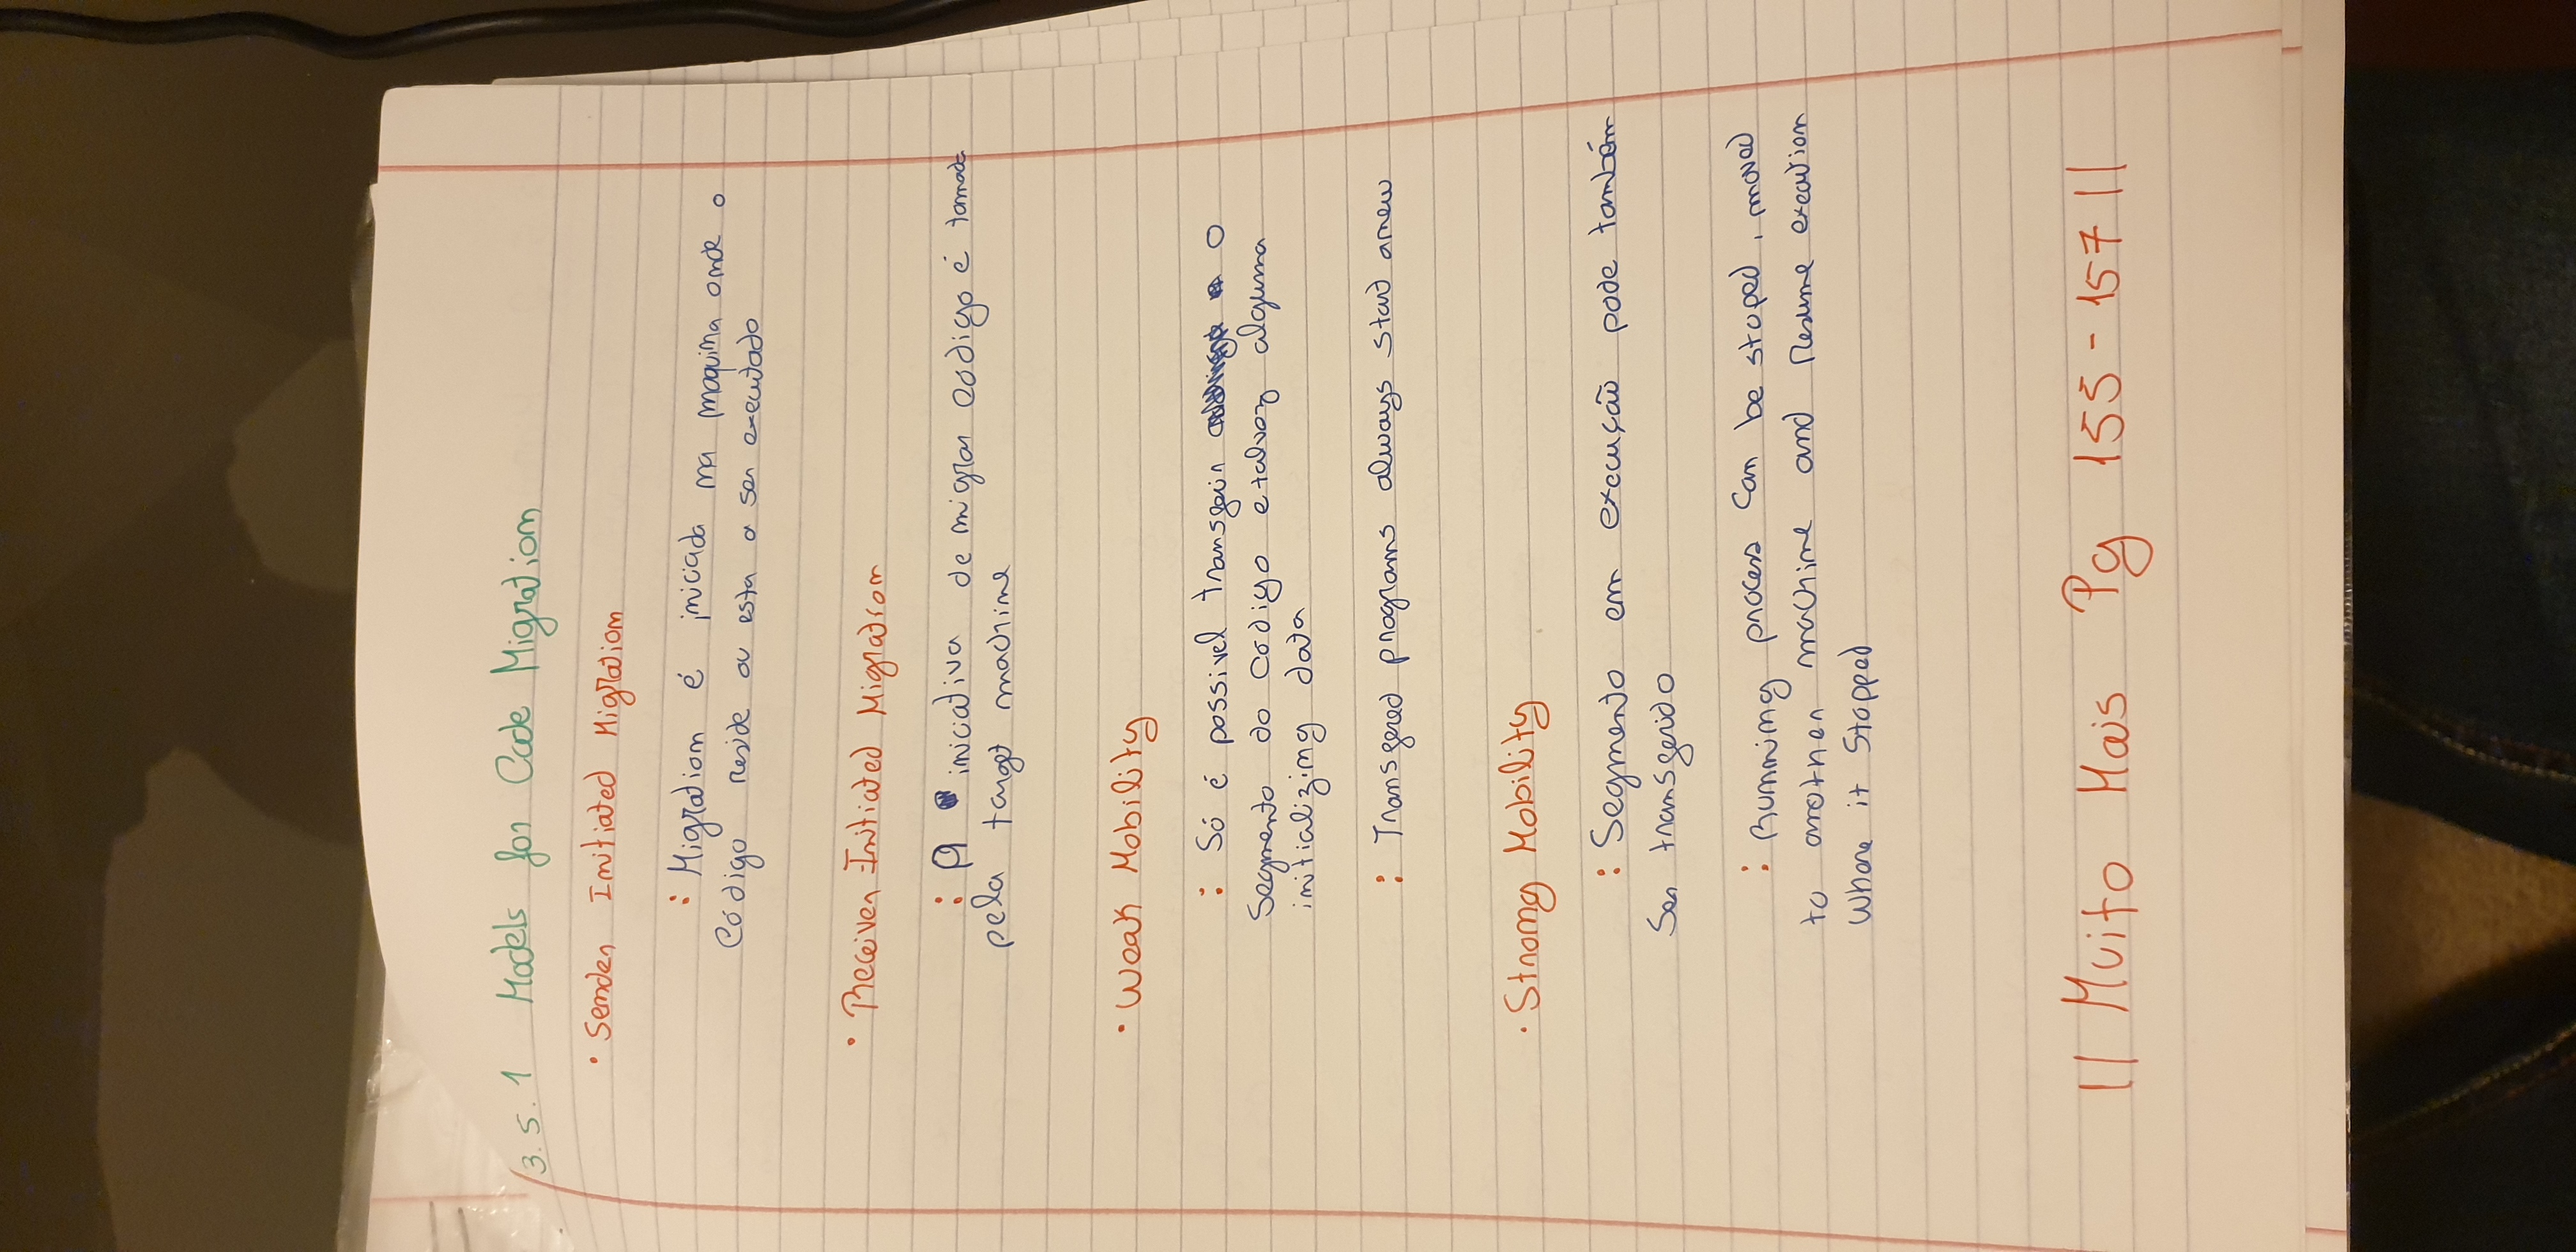 3.5.1 Models for Code Migration
• Sender Initiated Migration
: Migration é iniciada na maquina onde o
Código reside ou esta a ser executado
• Receiver-Initiated Migration
: A iniciativa de migrar código é tomada
pela target machine
• Weak Mobility
: Só é possivel transferir o
Segmento do Código e talvez alguma
initializing data
: Transfered programs always start anew
• Strong Mobility
: Segmento em execução pode também
Ser transferido
: Running process can be stoped, moved
to another machine and Resume execution
Where it Stopped
|| Muito Mais Pg 155-157 ||